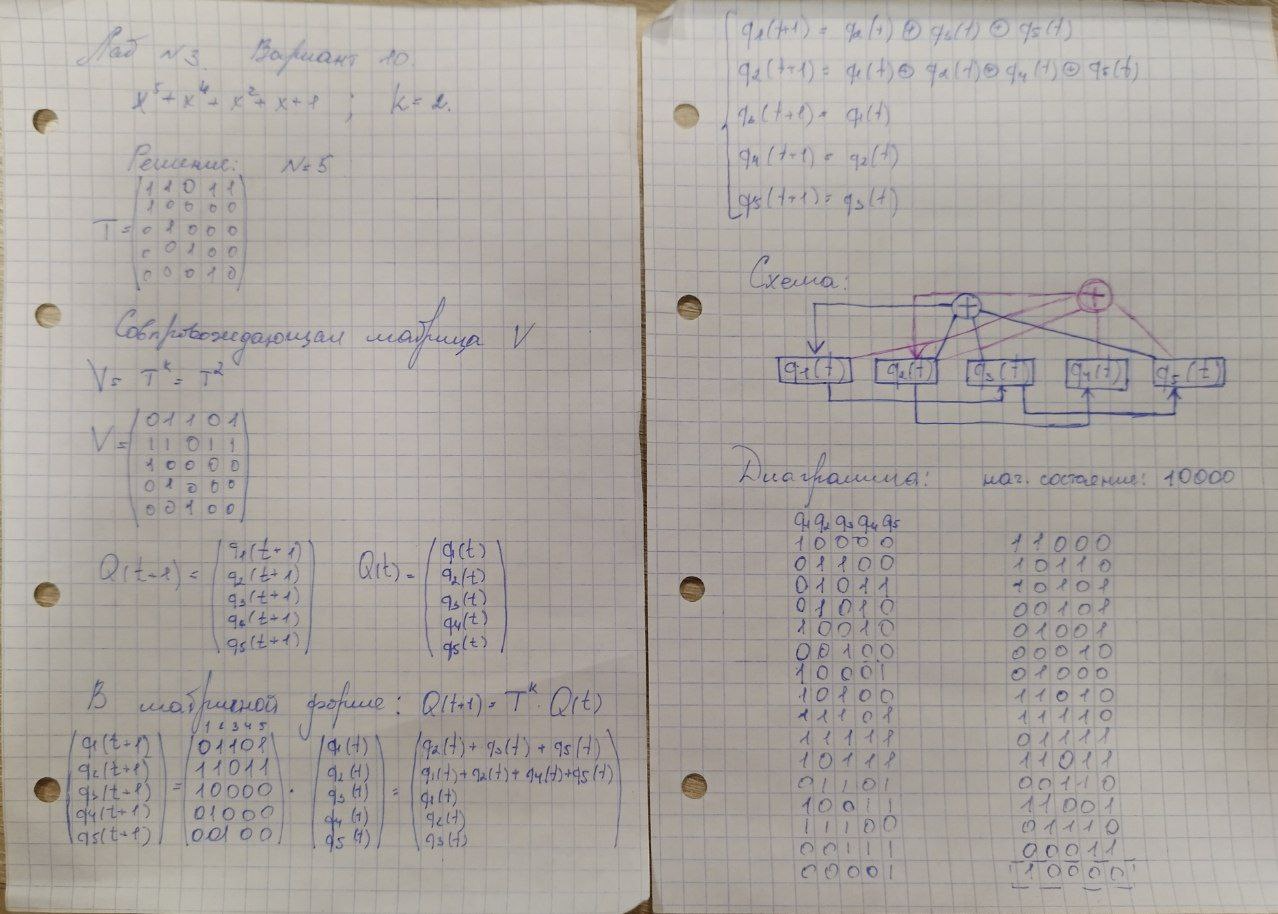 Лаб №3. Вариант 10.
x⁵ + x⁴ + x² + x + 1 ; k = 2.
Решение: N=5
T = (1 1 0 1 1
1 0 0 0 0
0 1 0 0 0
0 0 1 0 0
0 0 0 1 0)
Совпровождающая матрица V
V = Tᵏ = T²
V = (0 1 1 0 1
1 1 0 1 1
1 0 0 0 0
0 1 0 0 0
0 0 1 0 0)
Q(t+1) = (q1(t+1) Q(t) = (q1(t)
q2(t+1) q2(t)
q3(t+1) q3(t)
q4(t+1) q4(t)
q5(t+1)) q5(t))
В матричной форме: Q(t+1) = Tᵏ · Q(t)
1 2 3 4 5
(q1(t+1) (0 1 1 0 1 (q1(t) (q2(t) + q3(t) + q5(t)
q2(t+1) 1 1 0 1 1 q2(t) q1(t) + q2(t) + q4(t) + q5(t)
q3(t+1) = 1 0 0 0 0 · q3(t) = q1(t)
q4(t+1) 0 1 0 0 0 q4(t) q2(t)
q5(t+1)) 0 0 1 0 0) q5(t)) q3(t))
{ q1(t+1) = q2(t) ⊕ q3(t) ⊕ q5(t)
q2(t+1) = q1(t) ⊕ q2(t) ⊕ q4(t) ⊕ q5(t)
q3(t+1) = q1(t)
q4(t+1) = q2(t)
q5(t+1) = q3(t)
Схема:
⊕ ⊕
q1(t) q2(t) q3(t) q4(t) q5(t)
Диаграмма: нач. состояние: 10000
q1 q2 q3 q4 q5
1 0 0 0 0 1 1 0 0 0
0 1 1 0 0 1 0 1 1 0
0 1 0 1 1 1 0 1 0 1
0 1 0 1 0 0 0 1 0 1
1 0 0 1 0 0 1 0 0 1
0 0 1 0 0 0 0 0 1 0
1 0 0 0 1 0 1 0 0 0
1 0 1 0 0 1 1 0 1 0
1 1 1 0 1 1 1 1 1 0
1 1 1 1 1 0 1 1 1 1
1 0 1 1 1 1 1 0 1 1
0 1 1 0 1 0 0 1 1 0
1 0 0 1 1 1 1 0 0 1
1 1 1 0 0 0 1 1 1 0
0 0 1 1 1 0 0 0 1 1
0 0 0 0 1 1 0 0 0 0